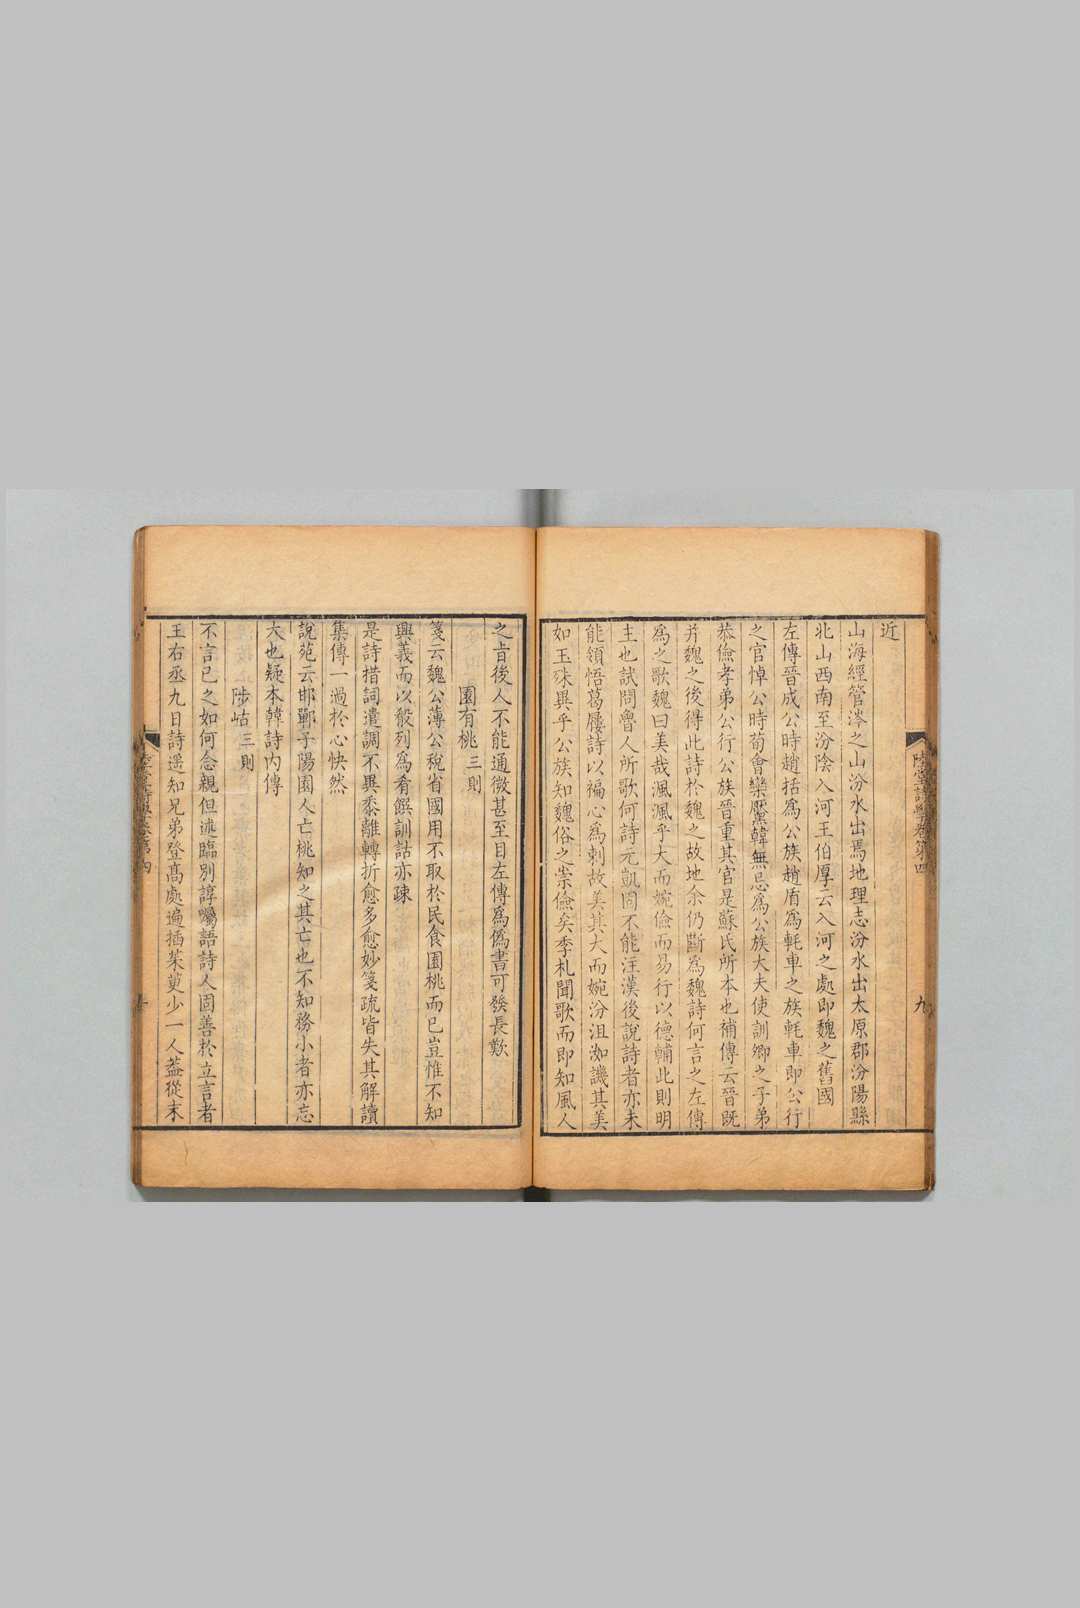 陸堂詩學卷第四
九
近
山海經管涔之山汾水出焉地理志汾水出太原郡汾陽縣
北山西南至汾陰入河王伯厚云入河之處即魏之舊國
左傳晉成公時趙括爲公族趙盾爲軞車之族軞車即公行
之官悼公時荀會欒黶韓無忌爲公族大夫使訓卿之子弟
恭儉孝弟公行公族晉重其官是蘇氏所本也補傳云晉既
并魏之後得此詩於魏之故地余仍斷爲魏詩何言之左傳
爲之歌魏曰美哉渢渢乎大而婉儉而易行以德輔此則明
主也試問魯人所歌何詩元凱固不能注漢後說詩者亦未
能領悟葛屨詩以褊心爲刺故美其大而婉汾沮洳譏其美
如玉殊異乎公族知魏俗之崇儉矣季札聞歌而即知風人
之旨後人不能通微甚至目左傳爲僞書可發長歎
園有桃 三則
箋云魏公薄公稅省國用不取於民食園桃而已豈惟不知
興義而以殽列爲肴饌訓詁亦疎
是詩措詞遣調不異黍離轉折愈多愈妙箋疏皆失其解讀
集傳一過於心快然
說苑云邯鄲子陽園人亡桃知之其亡也不知務小者亦忘
大也疑本韓詩內傳
陟岵 三則
不言己之如何念親但述臨別諄囑語詩人固善於立言者
王右丞九日詩遥知兄弟登高處遍插茱萸少一人葢從末